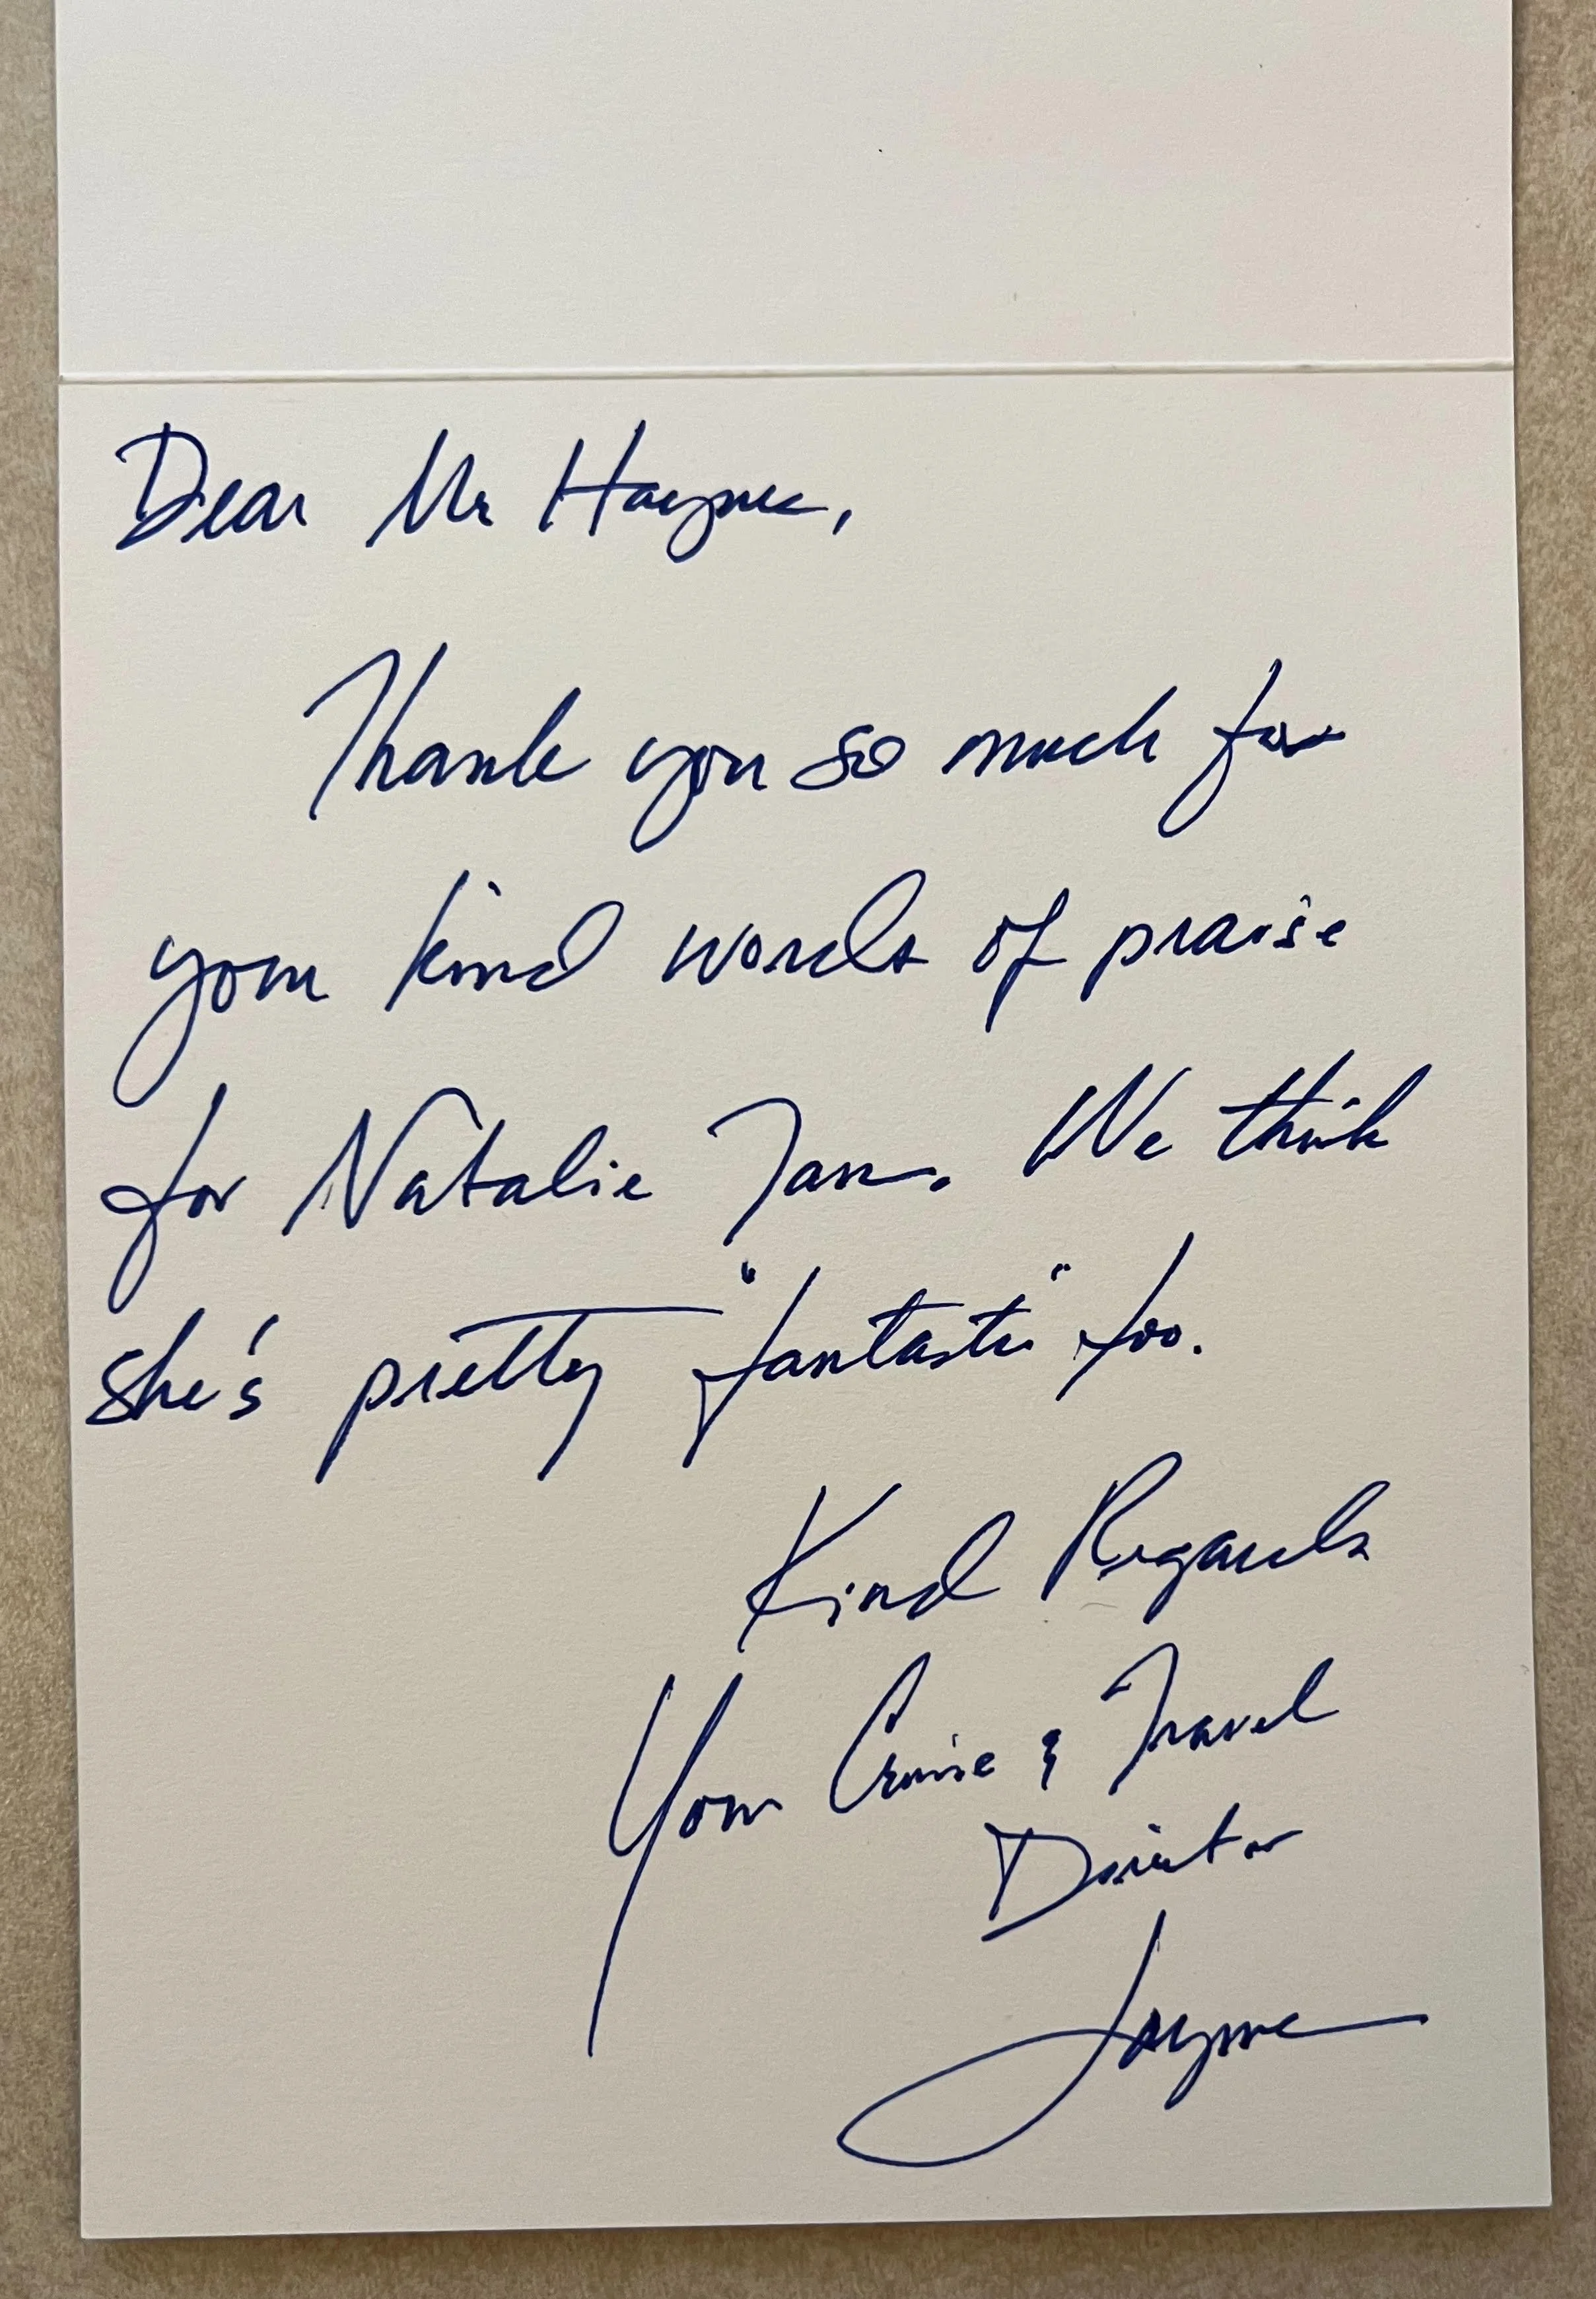 Dear Mr Hayne,
Thank you so much for
your kind words of praise
for Natalie Tan. We think
she's pretty "fantastic" too.
Kind Regards
Your Cruise & Travel
Director
Jayme